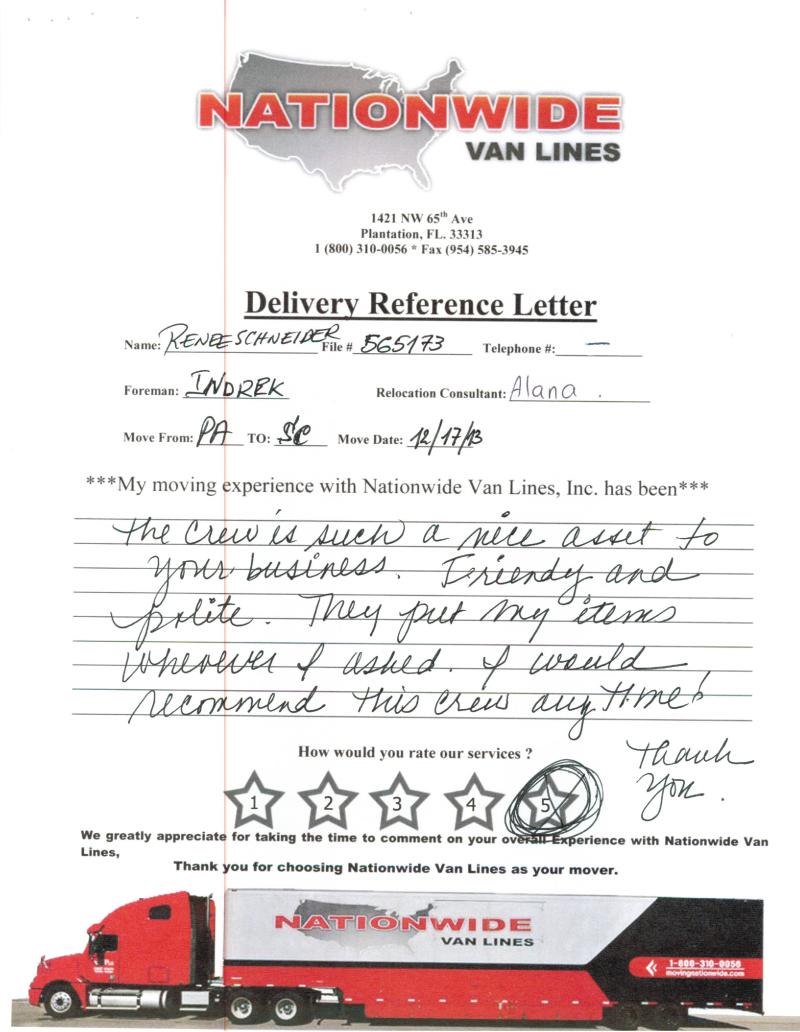 NATIONWIDE
VAN LINES
1421 NW 65th Ave
Plantation, FL. 33313
1 (800) 310-0056 * Fax (954) 585-3945
Delivery Reference Letter
Name: RENEE SCHNEIDER File # 565173 Telephone #: —
Foreman: INDREK Relocation Consultant: Alana .
Move From: PA TO: SC Move Date: 12/17/13
***My moving experience with Nationwide Van Lines, Inc. has been***
The crew is such a nice asset to
your business. Friendy and
polite. They put my items
wherever I asked. I would
recommend this crew any time!
How would you rate our services ?
Thank
You.
1 2 3 4 5
We greatly appreciate for taking the time to comment on your overall Experience with Nationwide Van
Lines,
Thank you for choosing Nationwide Van Lines as your mover.
NATIONWIDE
VAN LINES
1-800-310-0056
movingnationwide.com